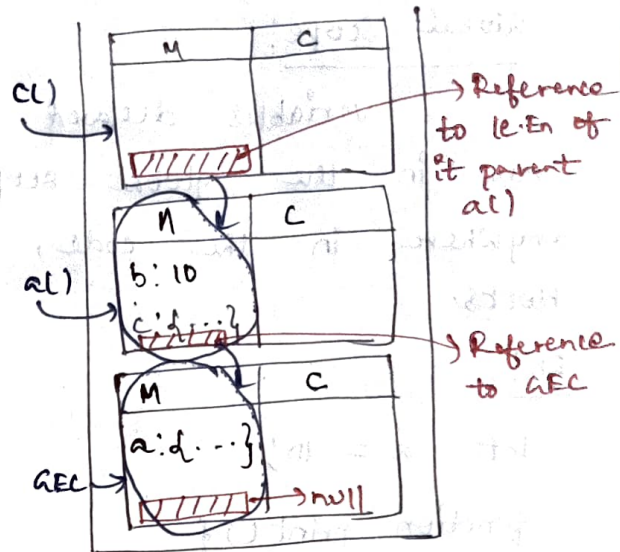 M C
c()
Reference
to le.En of
it parent
a()
M C
a()
b: 10
c: {...}
Reference
to GEC
M C
a: {...}
GEC
null